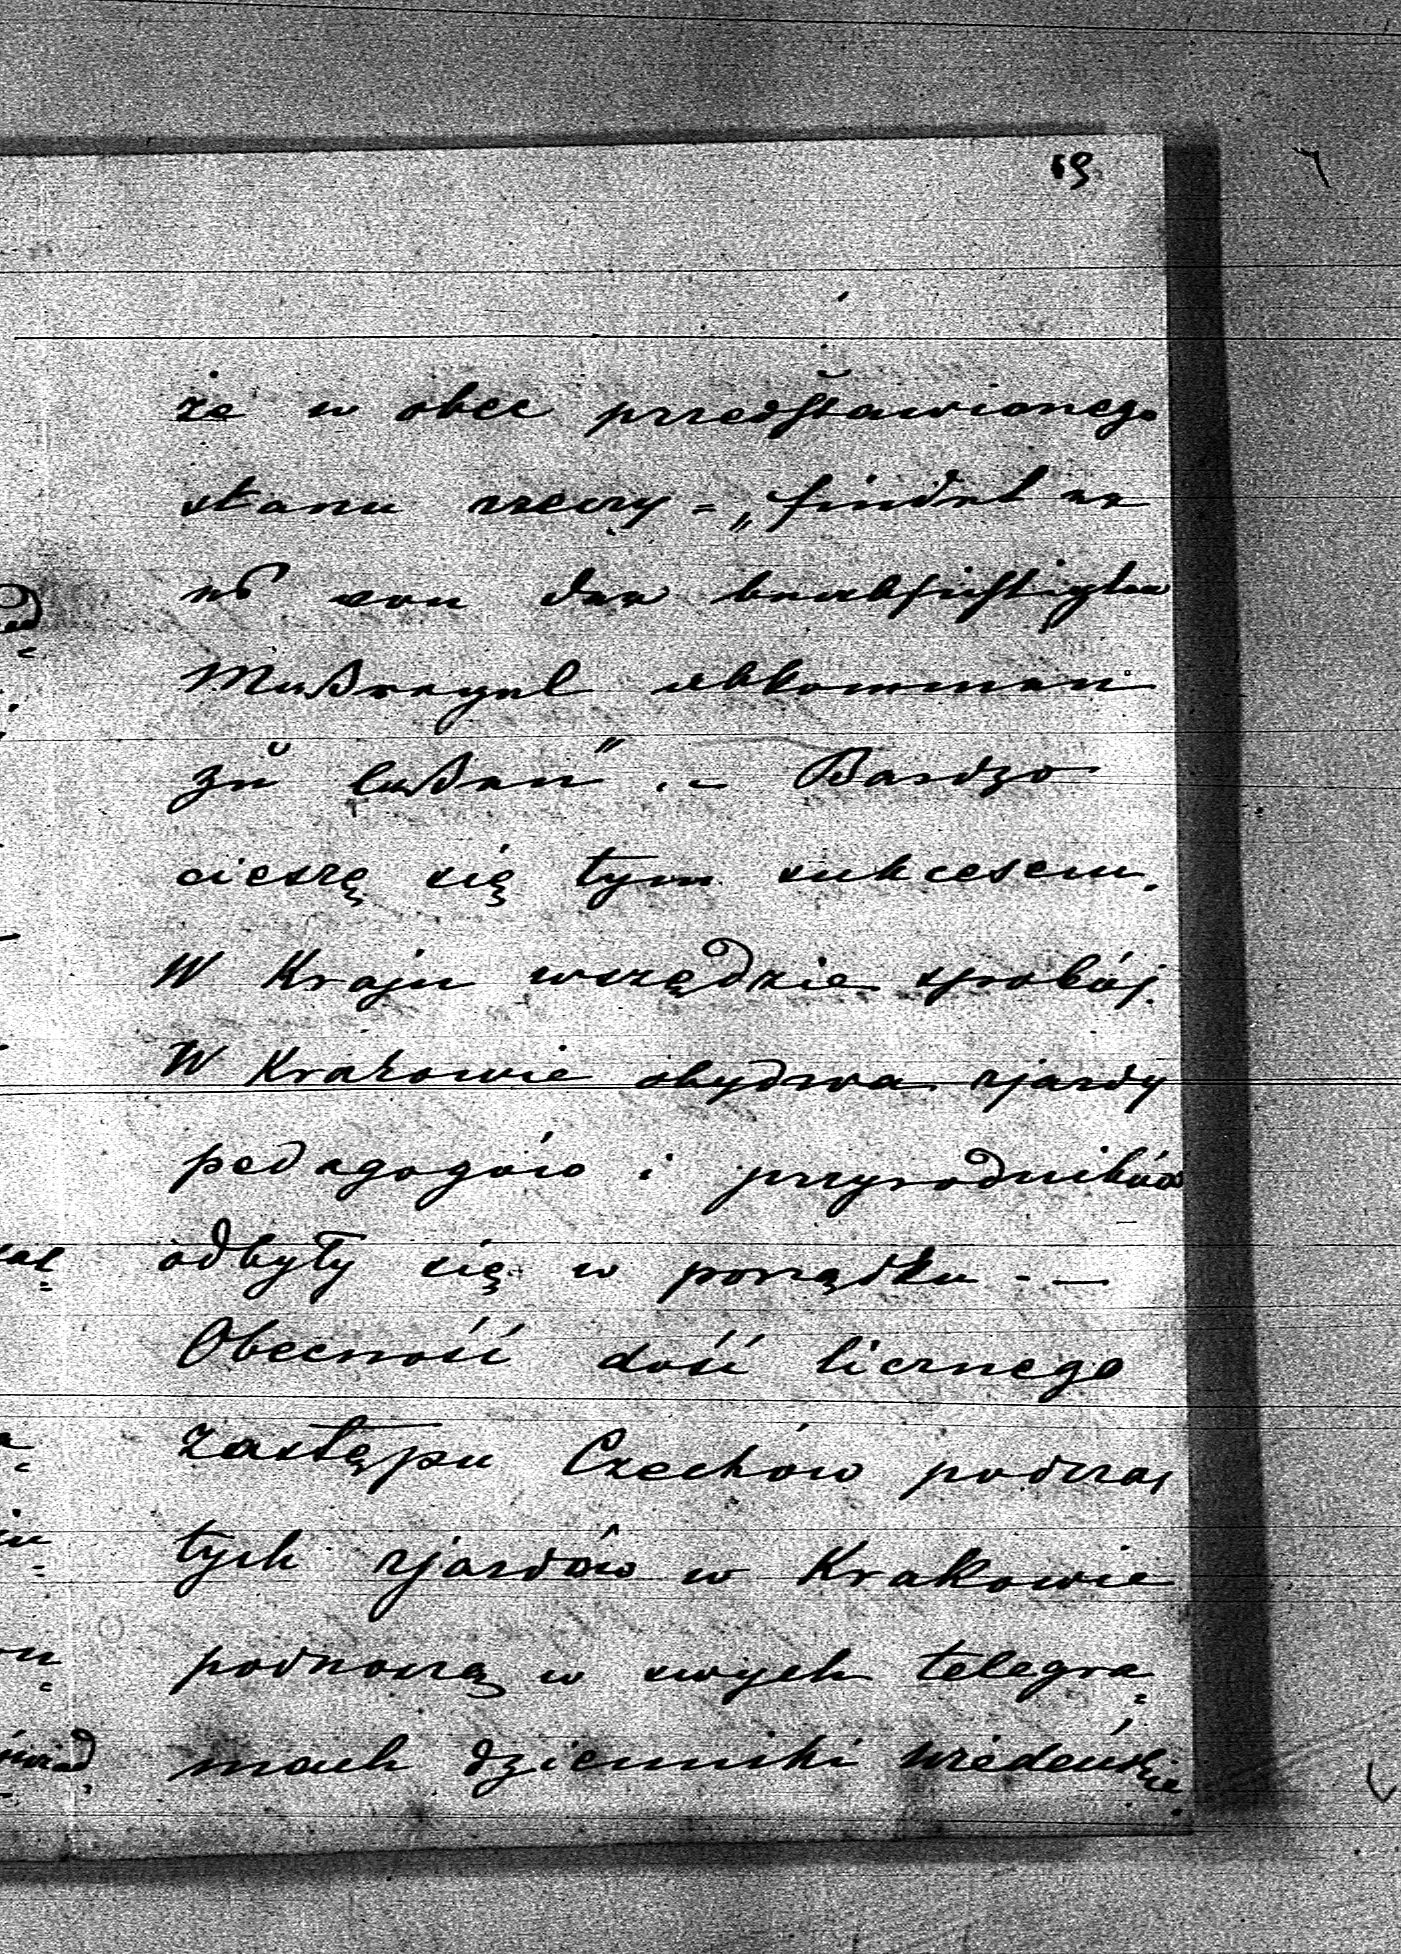 69
że w obec przedstawionego
stanu rzeczy = „findet er
es von der beabsichtigten
Maßregel abkommen
zu laßen". – Bardzo
cieszę się tym sukcesem.
W Kraju wszędzie spokój.
W Krakowie obydwa zjazdy
pedagogów i przyrodników
odbyły się w porządku. –
Obecność dość licznego
zastępu Czechów podczas
tych zjazdów w Krakowie
podnoszą w swych telegra=
mach dzienniki wiedeńskie.